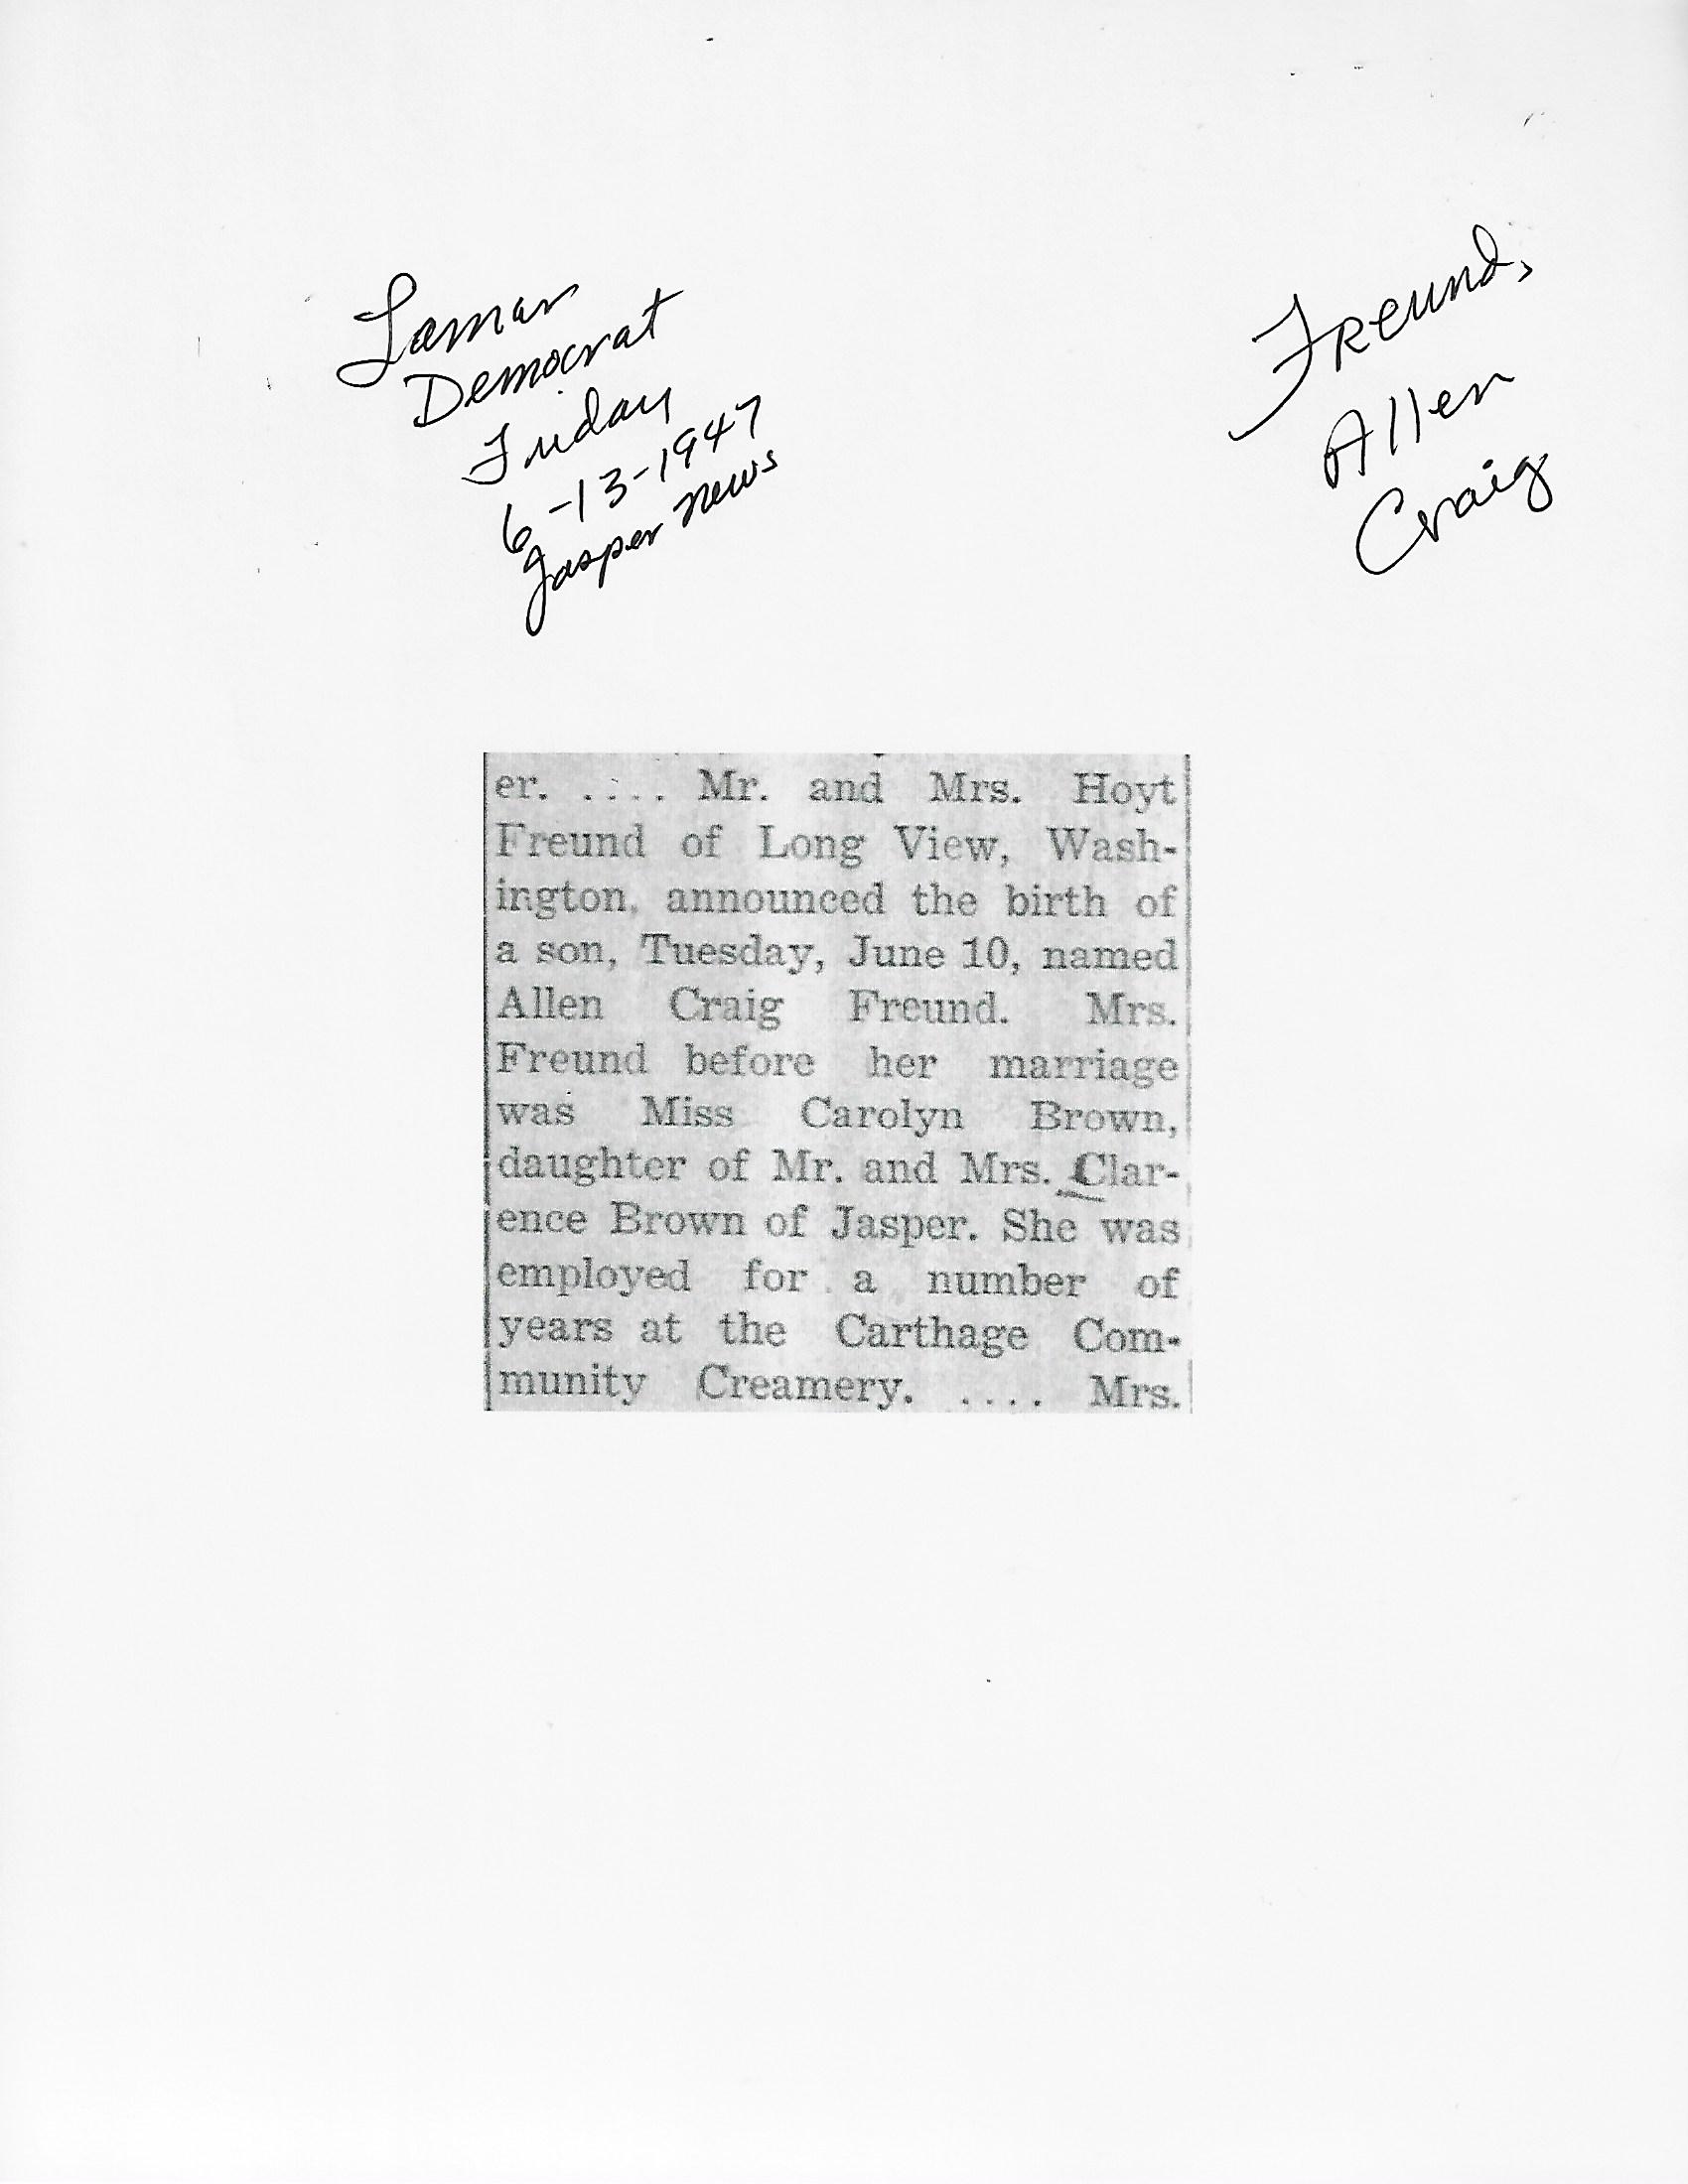 Lamar
Democrat
Friday
6-13-1947
Jasper News
Freund,
Allen
Craig
er. .... Mr. and Mrs. Hoyt
Freund of Long View, Wash-
ington, announced the birth of
a son, Tuesday, June 10, named
Allen Craig Freund. Mrs.
Freund before her marriage
was Miss Carolyn Brown,
daughter of Mr. and Mrs. Clar-
ence Brown of Jasper. She was
employed for a number of
years at the Carthage Com-
munity Creamery. .... Mrs.